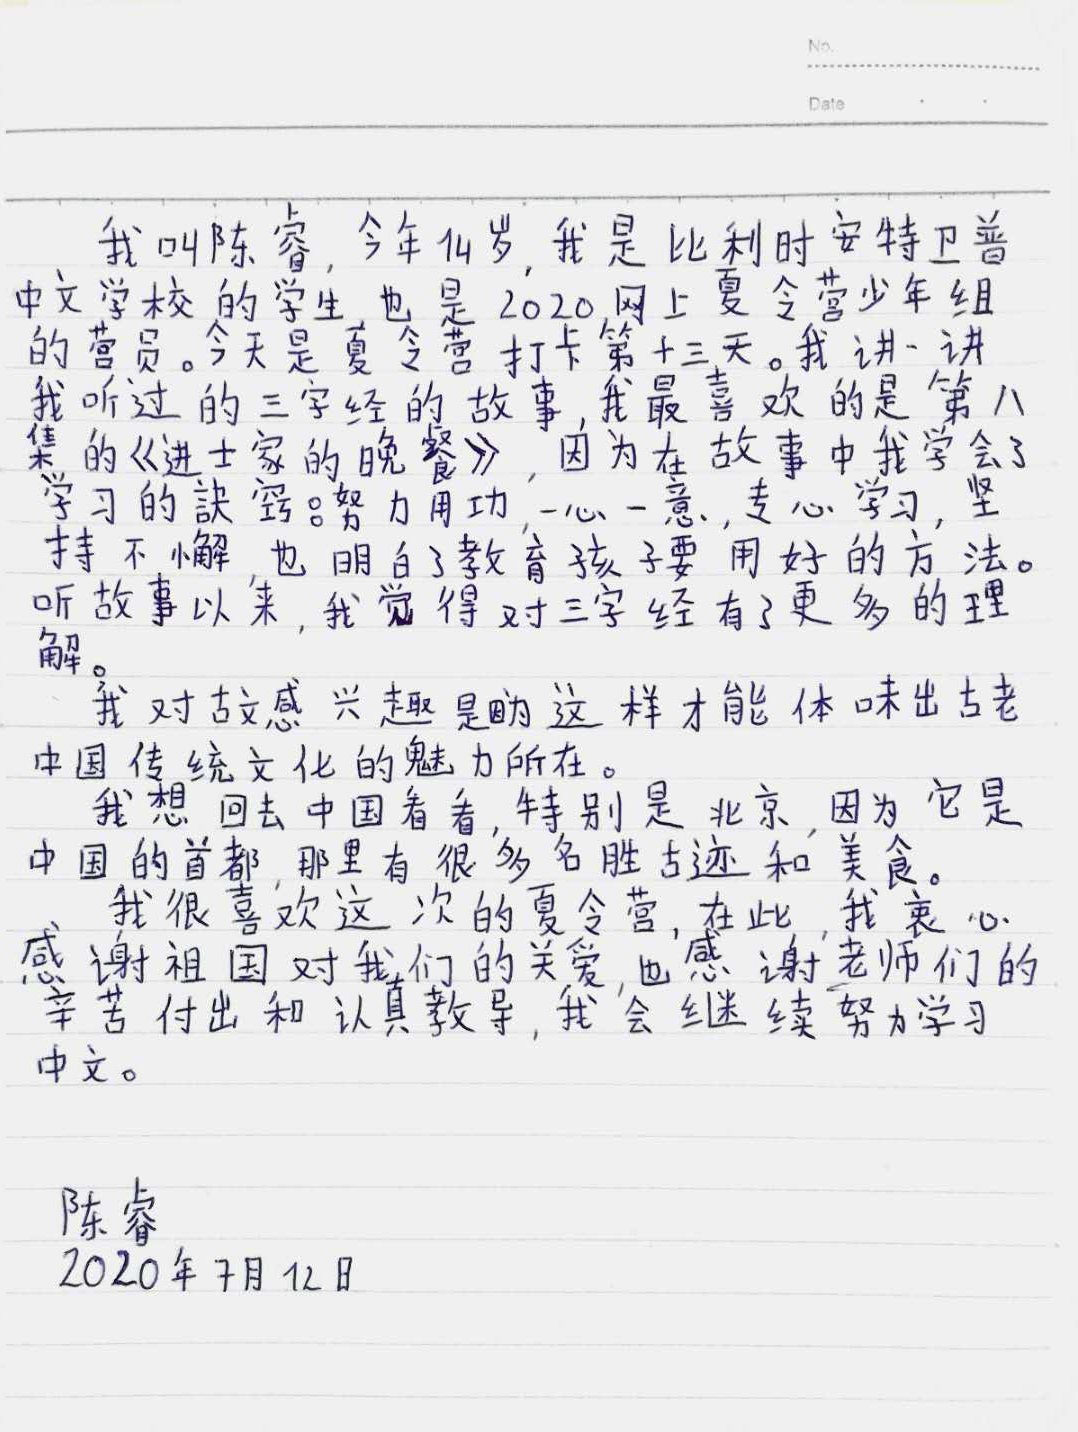 No.
Date
我叫陈睿,今年14岁,我是比利时安特卫普
中文学校的学生,也是2020网上夏令营少年组
的营员。今天是夏令营打卡第十三天。我讲一讲
我听过的三字经的故事,我最喜欢的是第八
集的《进士家的晚餐》,因为在故事中我学会了
学习的訣窍:努力用功,一心一意,专心学习,坚
持不懈,也明白了教育孩子要用好的方法。
听故事以来,我觉得对三字经有了更多的理
解。
我对古文感兴趣是因为这样才能体味出古老
中国传统文化的魅力所在。
我想回去中国看看,特别是北京,因为它是
中国的首都,那里有很多名胜古迹和美食。
我很喜欢这次的夏令营,在此,我衷心
感谢祖国对我们的关爱,也感谢老师们的
辛苦付出和认真教导,我会继续努力学习
中文。
陈睿
2020年7月12日